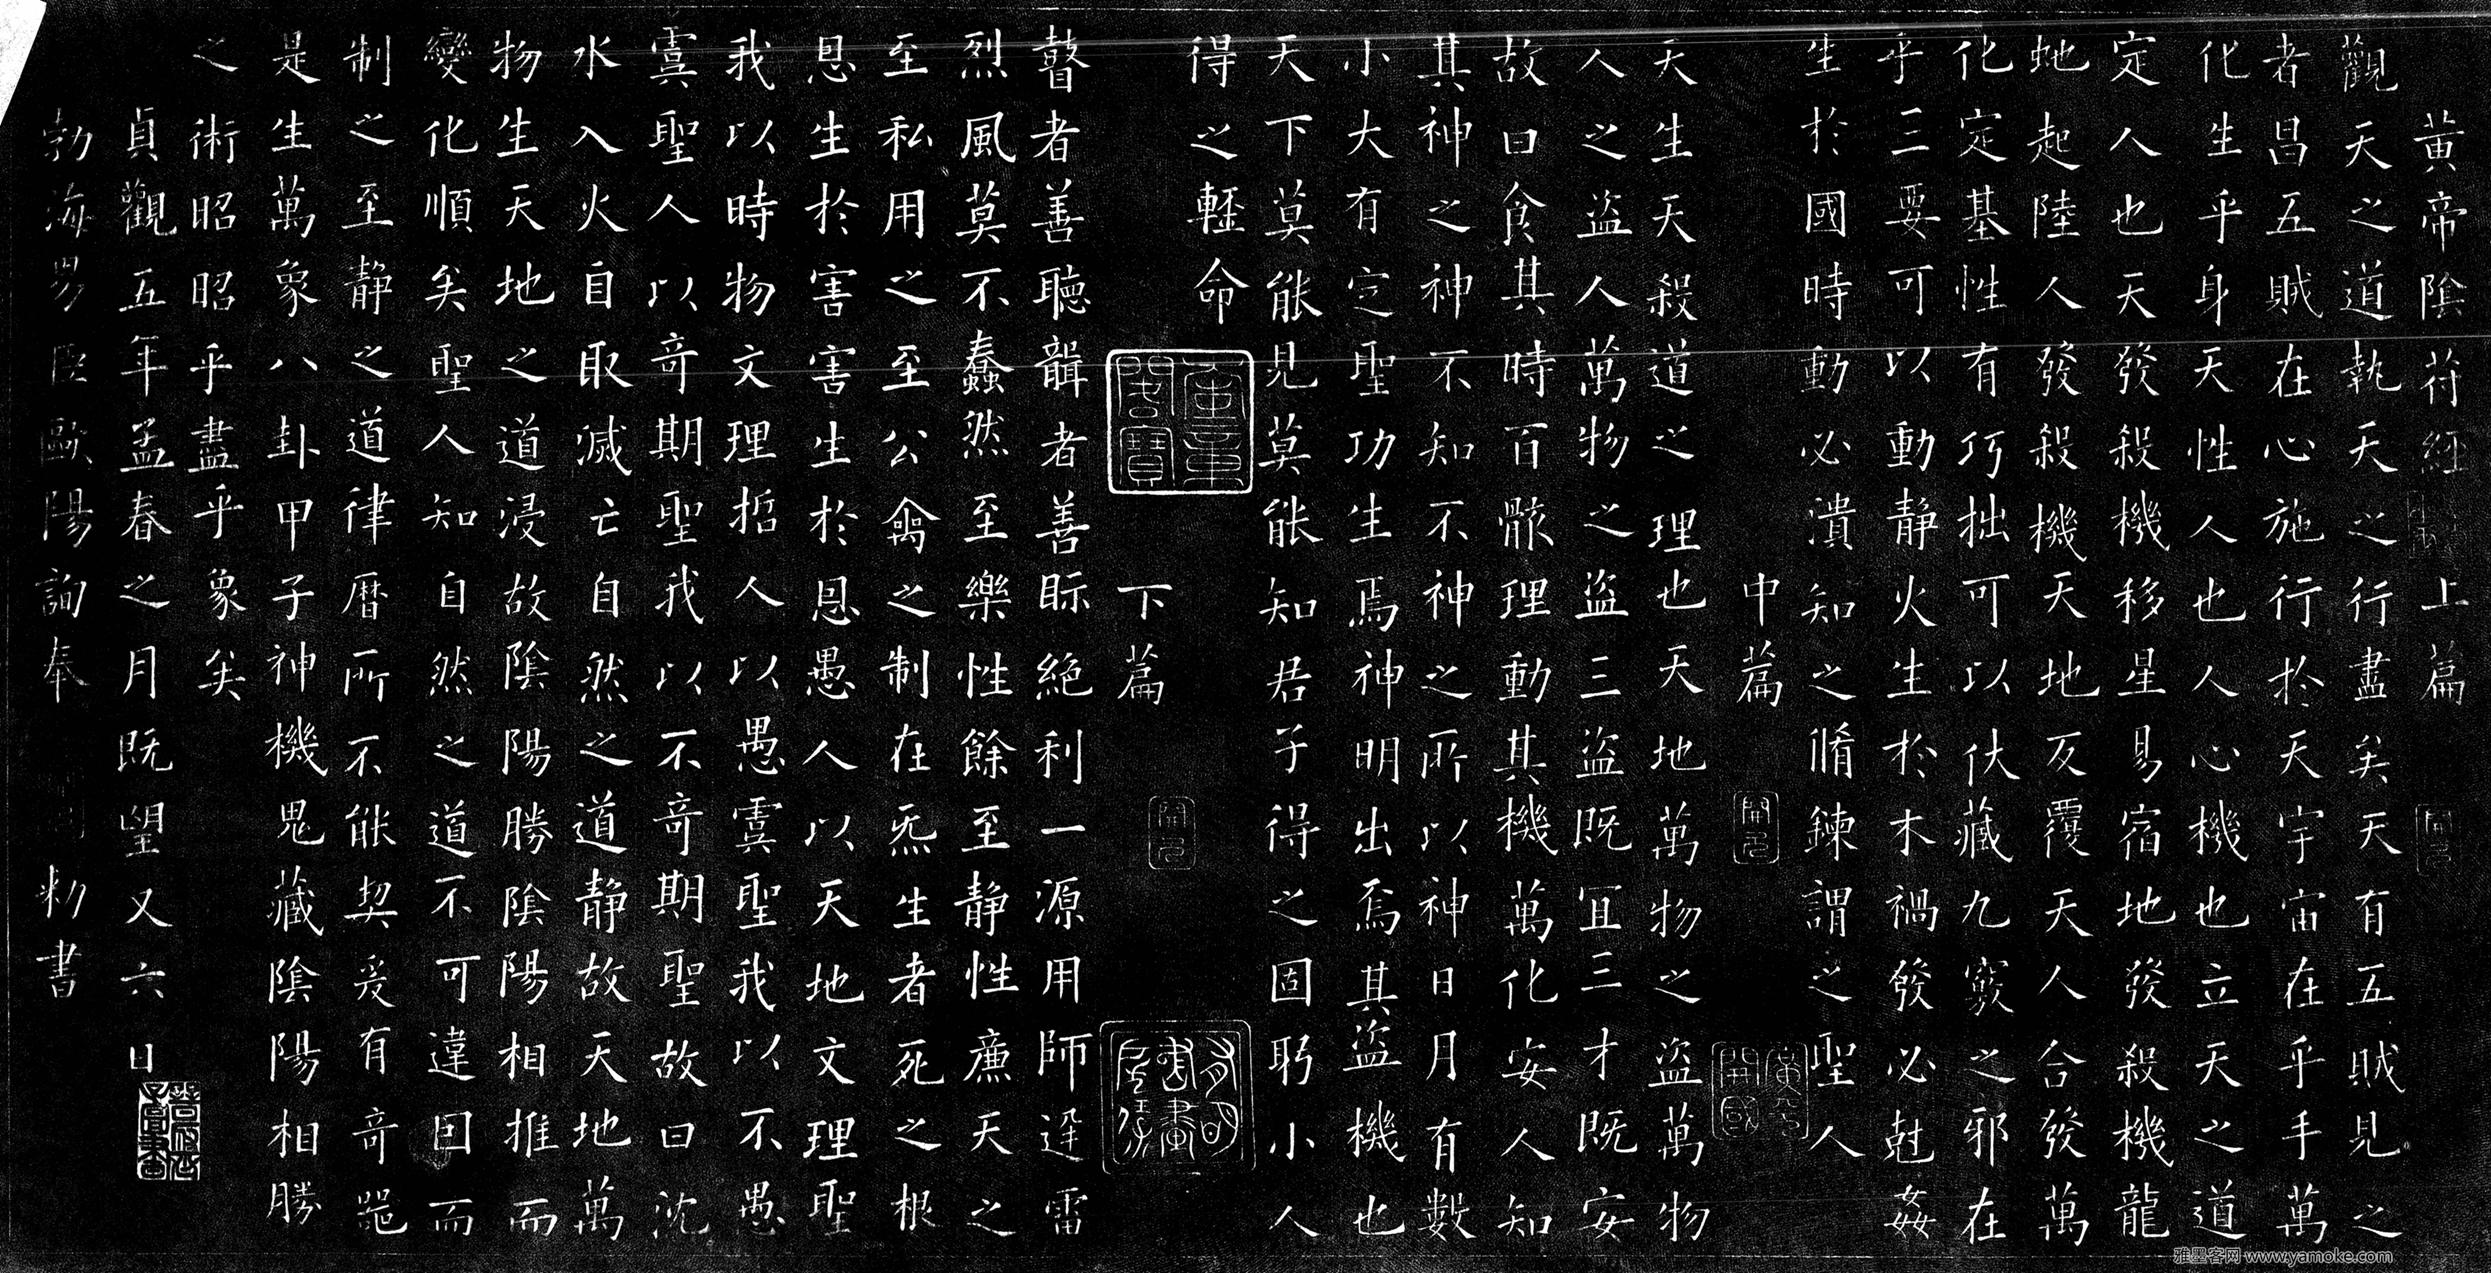 黄帝陰符經 上篇
觀天之道執天之行盡矣天有五賊見之
者昌五賊在心施行於天宇宙在乎手萬
化生乎身天性人也人心機也立天之道
定人也天發殺機移星易宿地發殺機龍
虵起陸人發殺機天地反覆天人合發萬
化定基性有巧拙可以伏藏九竅之邪在
乎三要可以動静火生於木禍發必尅姦
生於國時動必潰知之脩鍊謂之聖人
中篇
天生天殺道之理也天地萬物之盗萬物
人之盗人萬物之盗三盗既宜三才既安
故曰食其時百骸理動其機萬化安人知
其神之神不知不神之所以神日月有數
小大有定聖功生焉神明出焉其盗機也
天下莫能見莫能知君子得之固躬小人
得之輕命
下篇
瞽者善聽聾者善眎絶利一源用師雷
烈風莫不蠢然至樂性餘至静性廉天之
至私用之至公禽之制在炁生者死之根
恩生於害害生於恩愚人以天地文理聖
我以時物文理哲人以愚虞聖我以不愚
虞聖人以奇期聖我以不奇期聖故曰沈
水入火自取滅亡自然之道静故天地萬
物生天地之道浸故陰陽勝陰陽相推而
變化順矣聖人知自然之道不可違因而
制之至静之道律曆所不能契爰有奇器
是生萬象八卦甲子神機鬼藏陰陽相勝
之術昭昭乎盡乎象矣
貞觀五年孟春之月既望又六日
勃海男臣歐陽詢奉 勑書
雅墨客网 www.yamoke.com